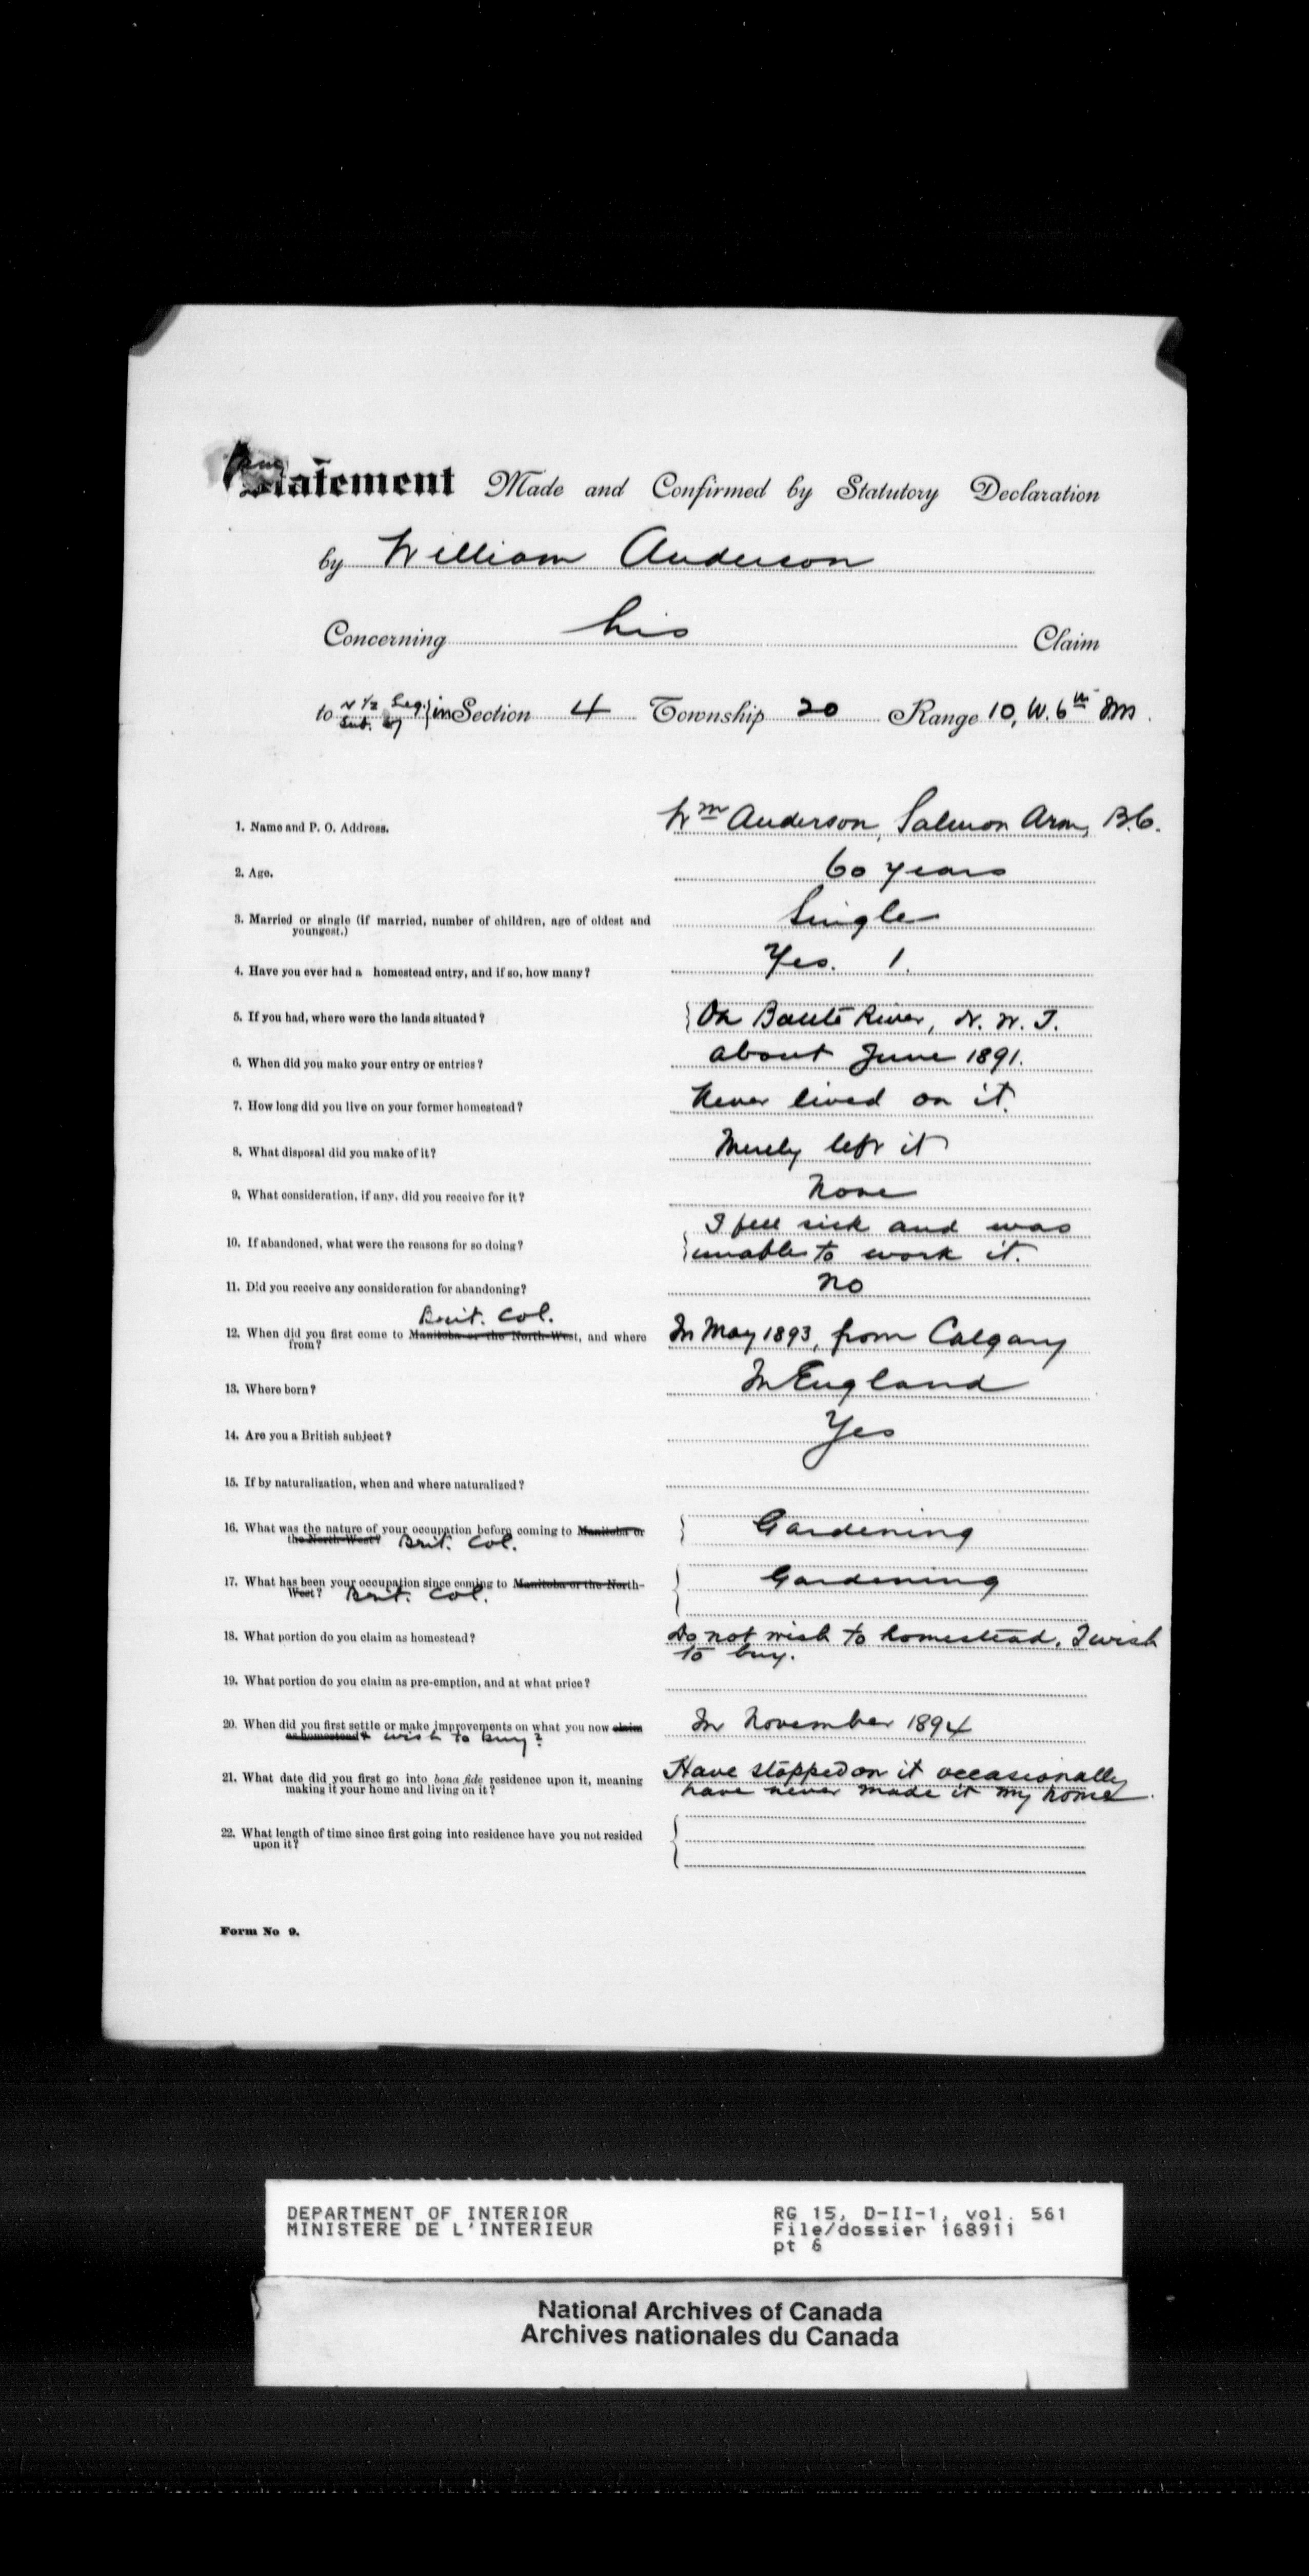 Statement Made and Confirmed by Statutory Declaration
by William Anderson
Concerning his Claim
to N 1/2 Leg. Sub. 7 } in Section 4 Township 20 Range 10, W. 6th M
1. Name and P. O. Address. Wm Anderson, Salmon Arm, B.C.
2. Age. 60 years
3. Married or single (if married, number of children, age of oldest and youngest.) Single
4. Have you ever had a homestead entry, and if so, how many? Yes. 1.
5. If you had, where were the lands situated? On River, N. W. T.
6. When did you make your entry or entries? about June 1891.
7. How long did you live on your former homestead? Never lived on it.
8. What disposal did you make of it? Merely left it
9. What consideration, if any, did you receive for it? None
10. If abandoned, what were the reasons for so doing? I fell sick and was
unable to work it.
11. Did you receive any consideration for abandoning? No
Brit. Col.
12. When did you first come to Manitoba or the North-West, and where from? In May 1893, from Calgary
13. Where born? In England
14. Are you a British subject? Yes
15. If by naturalization, when and where naturalized?
16. What was the nature of your occupation before coming to Manitoba or Gardening
the North-West? Brit. Col.
17. What has been your occupation since coming to Manitoba or the North- Gardening
West? Brit. Col.
18. What portion do you claim as homestead? Do not wish to homestead. I wish
to buy.
19. What portion do you claim as pre-emption, and at what price?
20. When did you first settle or make improvements on what you now claim In November 1894
as homestead? wish to buy?
21. What date did you first go into bona fide residence upon it, meaning Have stopped on it occasionally
making it your home and living on it? have never made it my home.
22. What length of time since first going into residence have you not resided
upon it?
Form No 9.
DEPARTMENT OF INTERIOR RG 15, D-II-1, vol. 561
MINISTERE DE L'INTERIEUR File/dossier 168911
pt 6
National Archives of Canada
Archives nationales du Canada